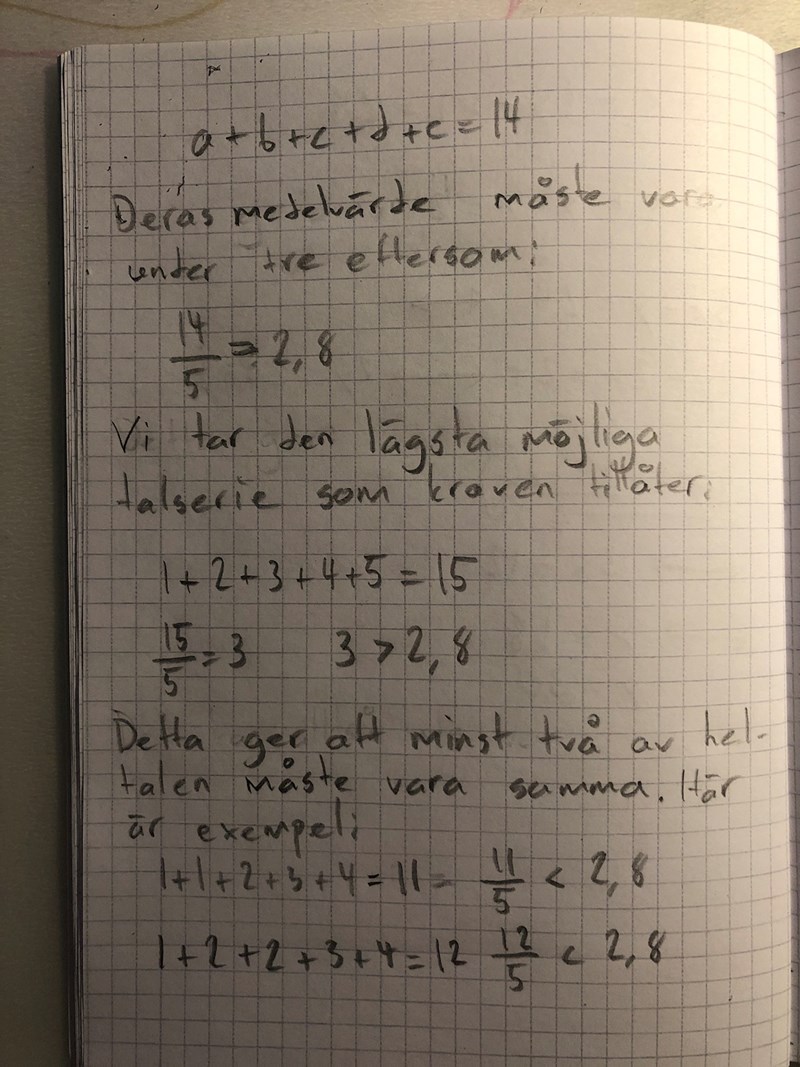 a+b+c+d+e=14
Deras medelvärde måste vara
under tre eftersom:
14/5 = 2,8
Vi tar den lägsta möjliga
talserie som kraven tillåter:
1+2+3+4+5=15
15/5=3 3>2,8
Detta ger att minst två av hel-
talen måste vara samma. Här
är exempel:
1+1+2+3+4=11= 11/5 < 2,8
1+2+2+3+4=12 12/5 < 2,8